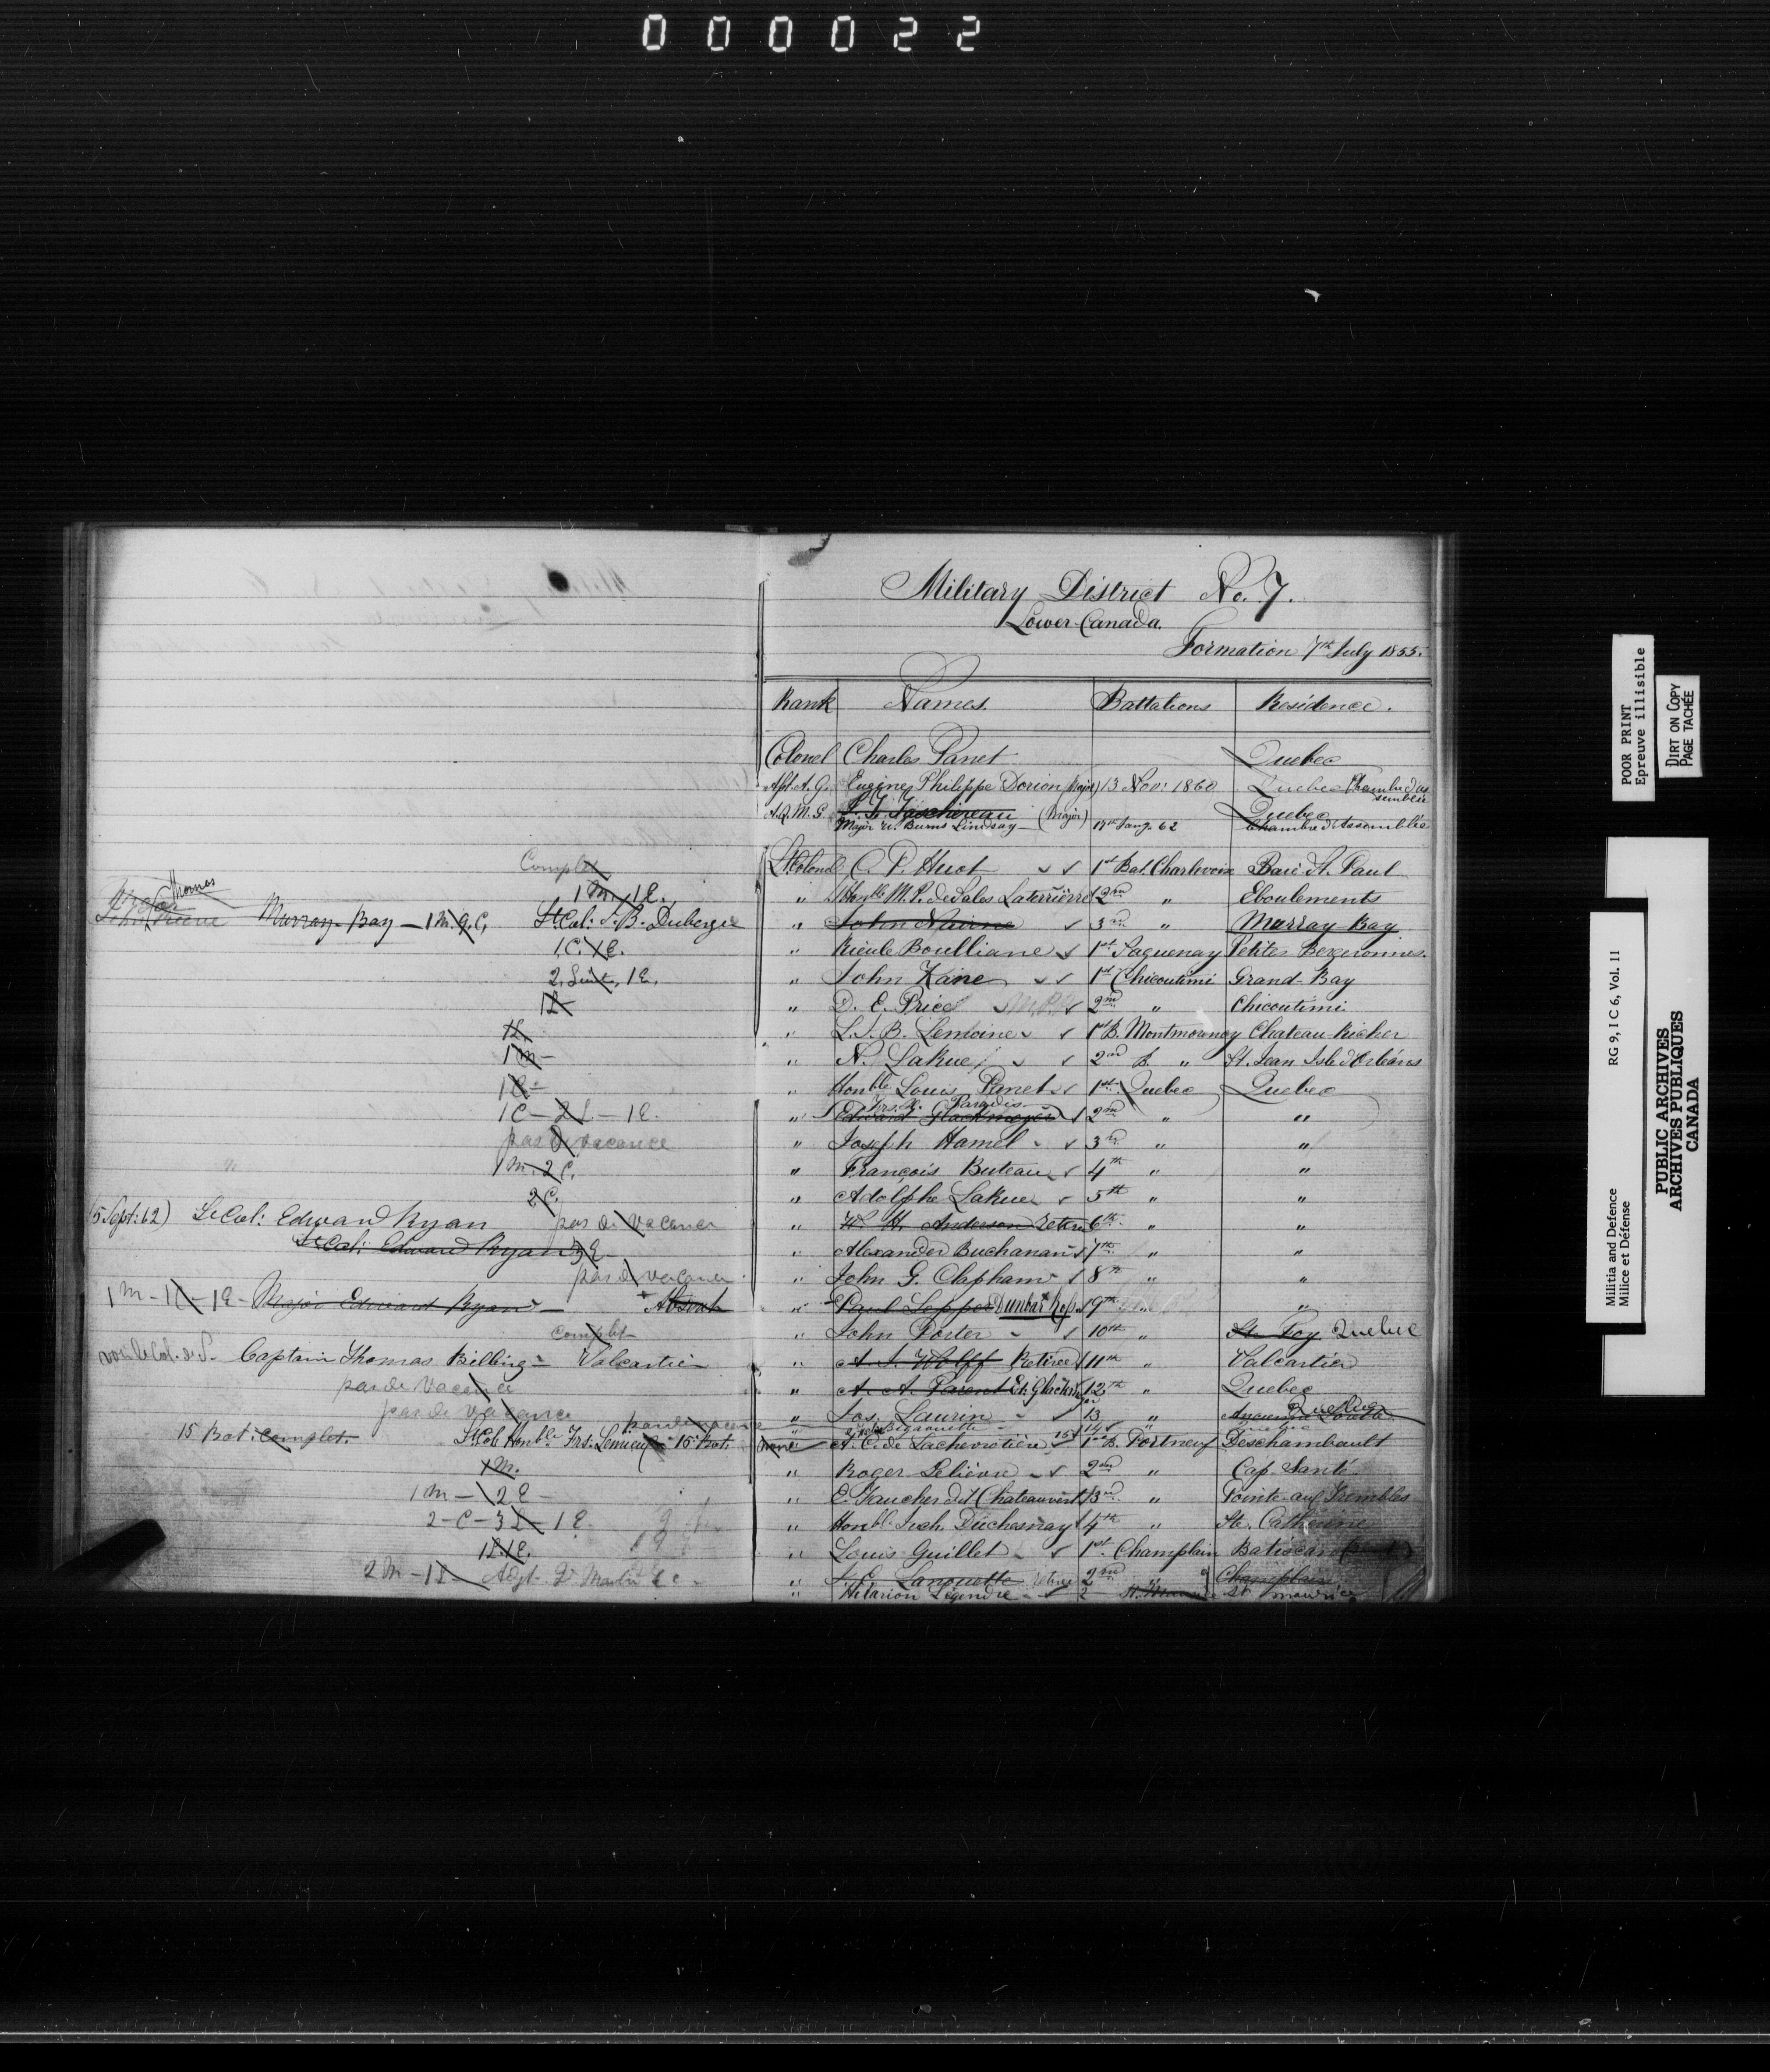 000022
Military District No. 7.
Lower Canada.
Formation 7th July 1855.
Rank Names. Battalions Residence.
Colonel Charles Panet Quebec
Eugène Philippe Dorion (Major) 13 Nov: 1860 Quebec Chambre d'As
semblée
A.Q.M.G. Taschereau (Major) Quebec
Major Burns Lindsay 17th Jany. 62 Chambre d'Assemblée
Complet Lt Colonel C. P. Huot 1st Bat. Charlevoix Baie St. Paul
Thomas
1 M. 1 E. " Honble M. P. deSales Laterrière 2nd " Eboulements
Murray Bay - 1 M. 9 C. Lt Col: J. B. Duberger " John Nairne 3rd " Murray Bay
1 C. 1 E. " Rieule Boulliane 1st Saguenay Petites Bergeronnes.
2 Lieut, 1 E. " John Kane 1st Chicoutimi Grand-Bay
1 L " D. E. Price 2nd " Chicoutimi
1 L " L. J. B. Lemoine 1st B. Montmorency Chateau-Richer
1 M - " N. LaRue 2nd B. " St. Jean Isle d'Orléans
1 C - " Honble Louis Panet 1st Quebec Quebec
Paradis
1 C - 2 L - 1 E. " Edward Glackmeyer 2nd " "
pas de vacance " Joseph Hamel 3rd " "
1 M. 2 C. " François Buteau 4th " "
2 C. " Adolphe LaRue 5th " "
(5 Sept: 62) Lt Col: Edward Ryan pas de vacance " W. H. Anderson retired 6th " "
Lt Col: Edward Ryan 3 E - " Alexander Buchanan 7th " "
pas de vacance " John G. Clapham 8th " "
1 M - 1 C - 1 E - Major Edward Ryan - Absent " Paul Lepper Dunbar Ross 9th " "
complet " John Porter 10th " St. Foy Quebec
Captain Thomas Billing - Valcartier " A. J. Wolff Retired 11th " Valcartier
pas de vacance " A. A. Parent Ed. Glackemeyer 12th " Quebec
pas de vacance " Jos. Laurin 13 " Ancienne Lorette Quebec
pas de vacance Bigaouette 14 "
15 Bat. Complet. Lt Col Honble Frs. Lemieux 15 Bat. A. C. de Lachevrotière 1st B. Portneuf Deschambault
1 M. " Roger Lelièvre 2nd " Cap Santé
1 M - 2 E - " E. Faucher dit Chateauvert 3rd " Pointe-aux Trembles
2 - C - 3 L - 1 E. " Honble Duchesnay 4th " Ste. Catherine
1 L. 1 E. " Louis Guillet 1st Champlain Batiscan
2 M - 1 L - Adjt. " Lanouette retired 2nd " Champlain
" Hilarion Legendre 2 St. Maurice
POOR PRINT
Epreuve illisible
DIRT ON COPY
PAGE TACHÉE
Militia and Defence RG 9, I C 6, Vol. 11
Milice et Défense
PUBLIC ARCHIVES
ARCHIVES PUBLIQUES
CANADA